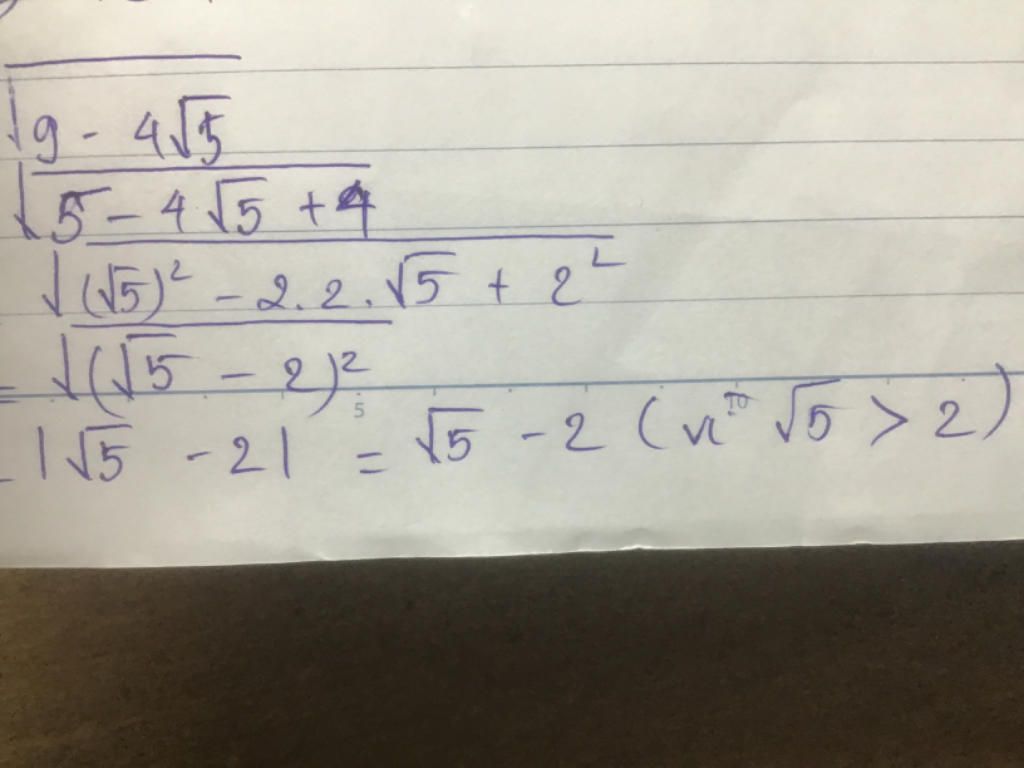 √9 - 4√5
√5 - 4√5 + 4
√(√5)² - 2.2.√5 + 2²
= √(√5 - 2)²
5
= |√5 - 2| = √5 - 2 (vì √5 > 2)